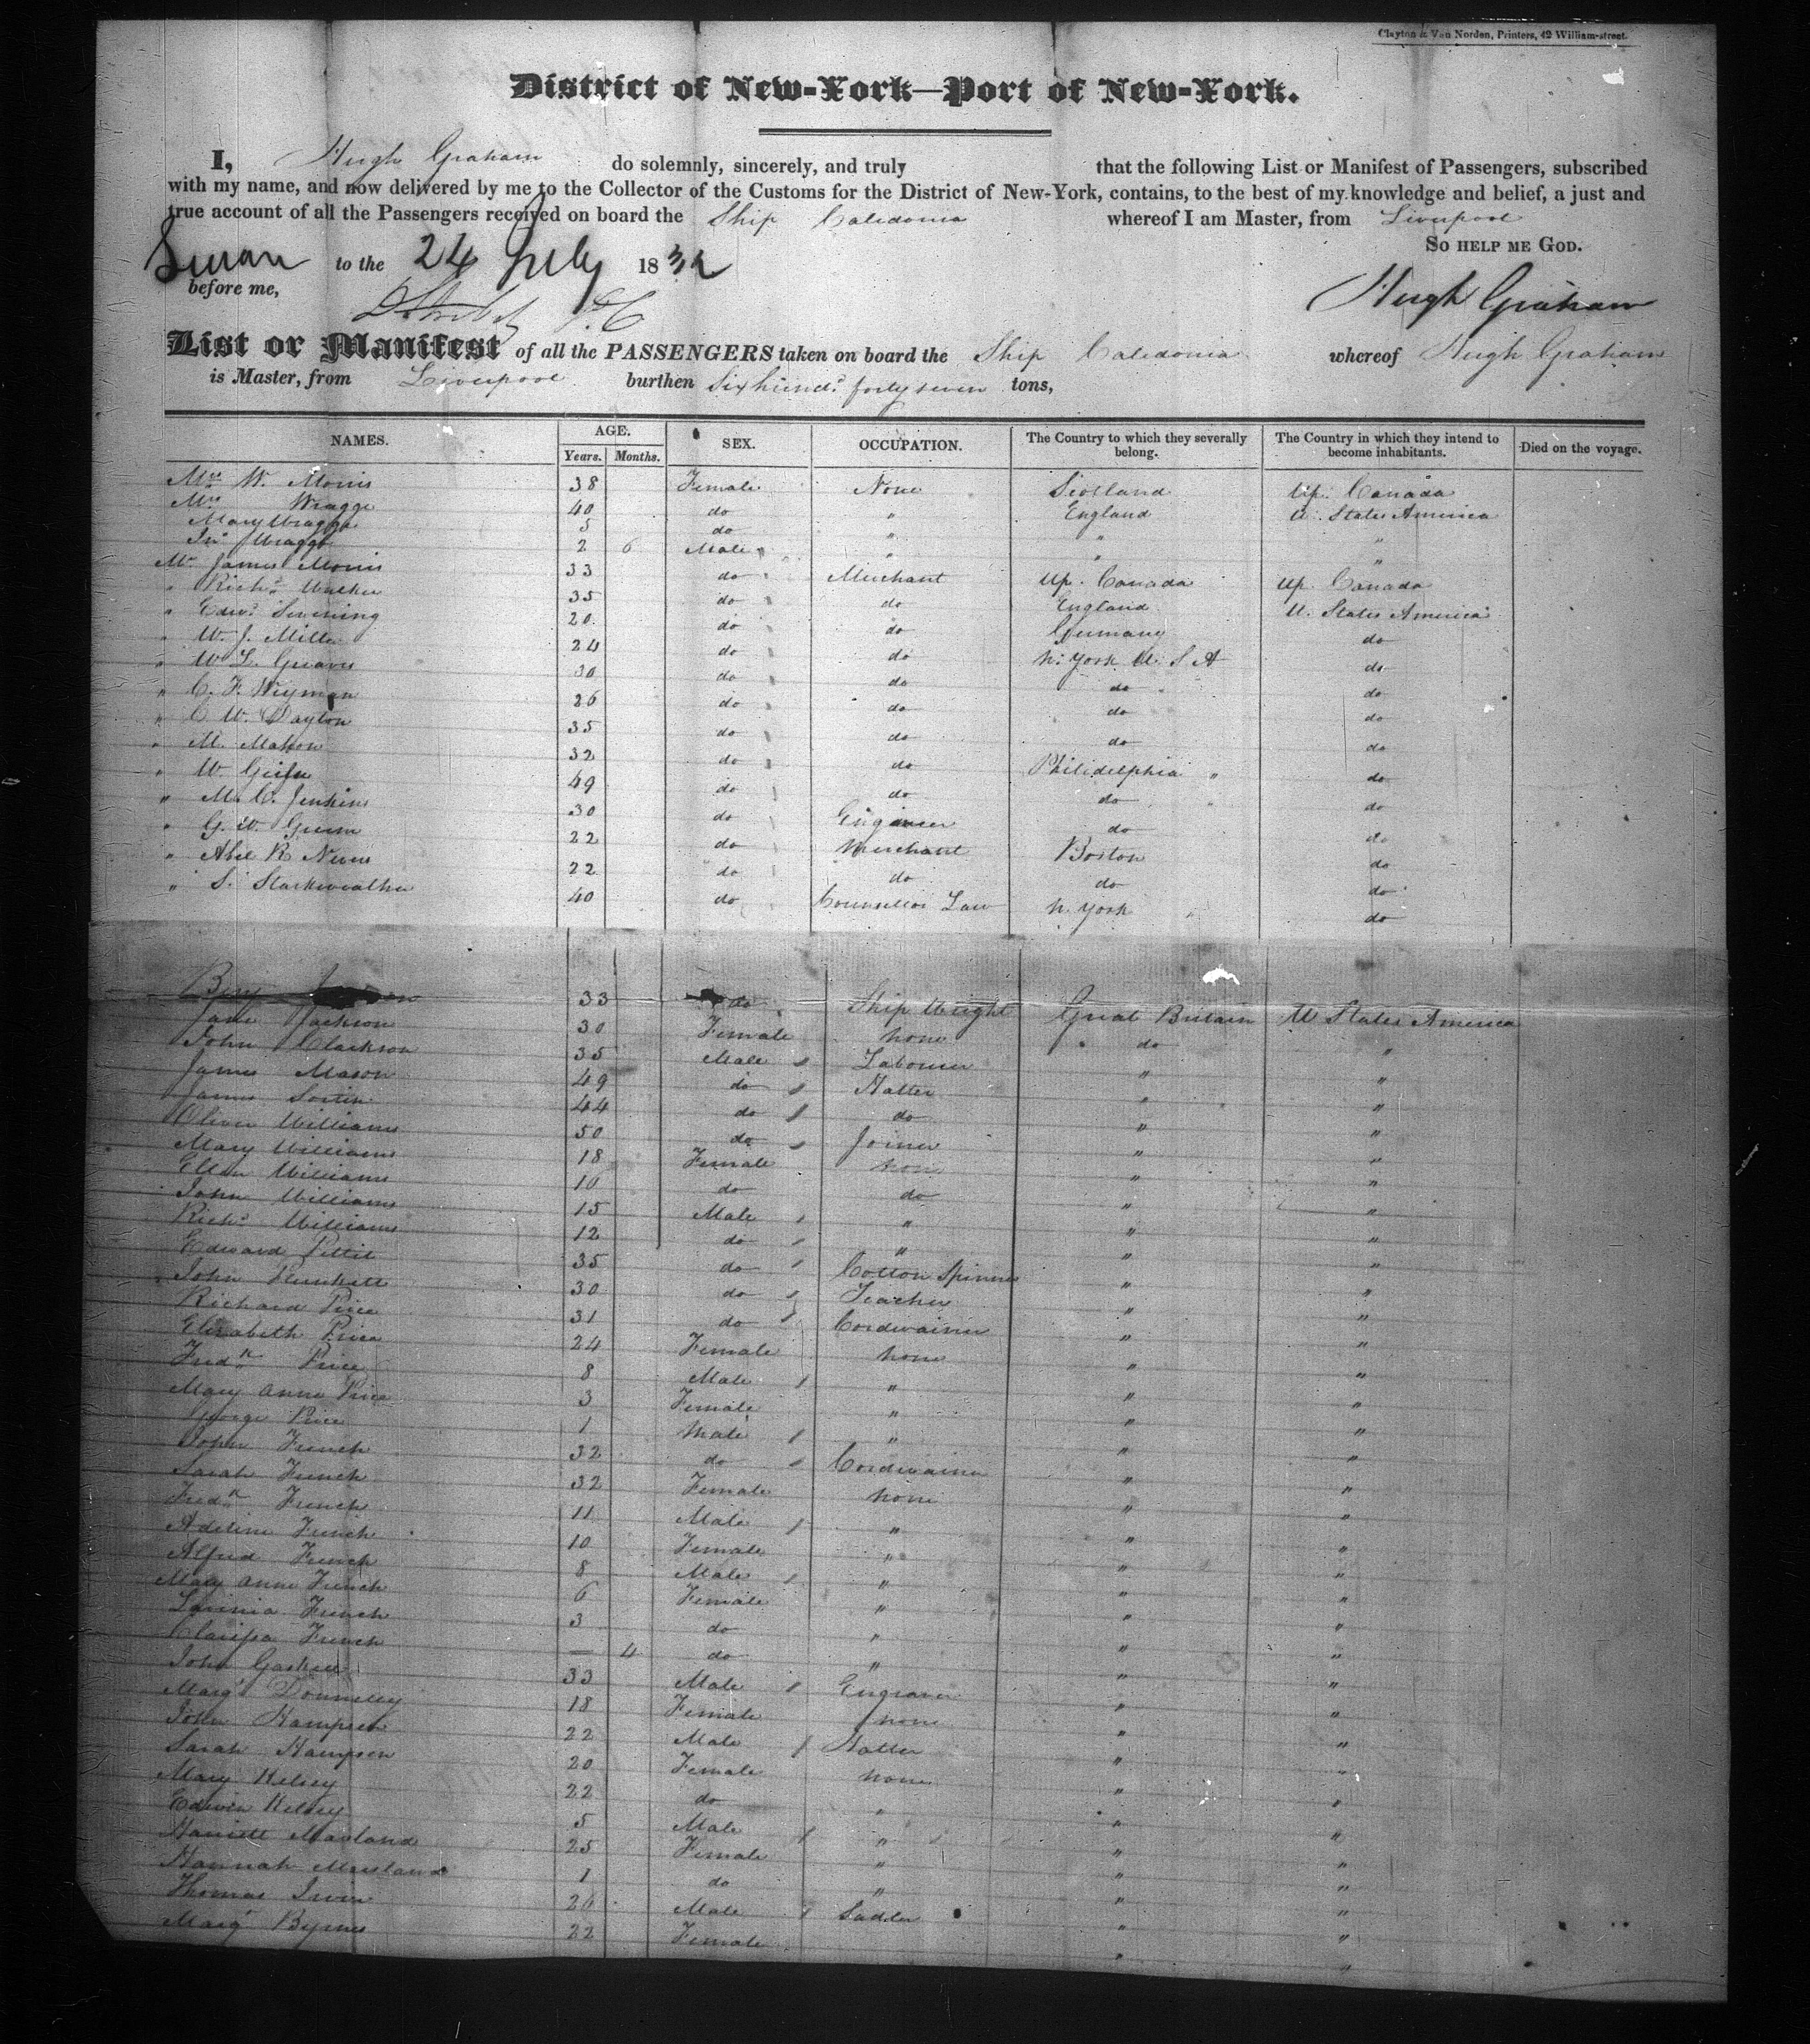 Clayton & Van Norden, Printers, 42 William-street.
District of New-York—Port of New-York.
I, Hugh Graham do solemnly, sincerely, and truly that the following List or Manifest of Passengers, subscribed
with my name, and now delivered by me to the Collector of the Customs for the District of New-York, contains, to the best of my knowledge and belief, a just and
true account of all the Passengers received on board the Ship Caledonia whereof I am Master, from Liverpool
So help me God.
Sworn to the 24 July 1832
before me, Hugh Graham
List or Manifest of all the PASSENGERS taken on board the Ship Caledonia whereof Hugh Graham
is Master, from Liverpool burthen Six hund.d forty seven tons,
NAMES. AGE. Years. Months. SEX. OCCUPATION. The Country to which they severally belong. The Country in which they intend to become inhabitants. Died on the voyage.
Mrs W. Morris 38 Female None Scotland Up. Canada
Mrs Wragge 40 do " England U. States America
Mary Wragge 5 do " " "
Jno Wragge 2 6 Male " " "
Mr James Morris 33 do Merchant Up. Canada Up. Canada
" Richd Walker 35 do do England U. States America
" Edwd 20 do do Germany do
" W. J. Miller 24 do do N. York U S A do
" W L. Graves 30 do do do do
" C. F. Weyman 26 do do do do
" C W. Dayton 35 do do do do
" M. Mahon 32 do do Philidelphia " do
" W. 49 do do do do
" M. C. Jenkins 30 do Engineer do do
" G. W. Green 22 do Merchant Boston do
" Abel R 22 do do do do
" S. Starkweather 40 do Counsellor Law N. York do
Benj 33 do Ship Wright Great Britain U States America
Jane Jackson 30 Female none do "
John Clarkson 35 Male Labourer " "
James Mason 49 do Hatter " "
James 44 do do " "
Oliver Williams 50 do Joiner " "
Mary Williams 18 Female none " "
Ellen Williams 10 do do " "
John Williams 15 Male " " "
Richd Williams 12 do " " "
Edward Pettit 35 do Cotton Spinner " "
John Plunkett 30 do Teacher " "
Richard Price 31 do Cordwainer " "
Elizabeth Price 24 Female none " "
Fredk Price 8 Male " " "
Mary Anne Price 3 Female " " "
George Price 1 Male " " "
John French 32 do Cordwainer " "
Sarah French 32 Female none " "
Fredk French 11 Male " " "
Adeline French 10 Female " " "
Alfred French 8 Male " " "
Mary Anne French 6 Female " " "
Lavinia French 3 do " " "
Clarissa French — 4 do " " "
John Gaskell 33 Male Engraver " "
Margt Donnelly 18 Female none " "
John Hampson 22 Male Hatter " "
Sarah Hampson 20 Female none " "
Mary Kelsey 22 do " " "
Edwin Kelsey 5 Male " " "
Harriett Marland 25 Female " " "
Hannah Marsland 1 do " " "
Thomas Irwin 20 Male Sadler " "
Margt Byrnes 22 Female " "